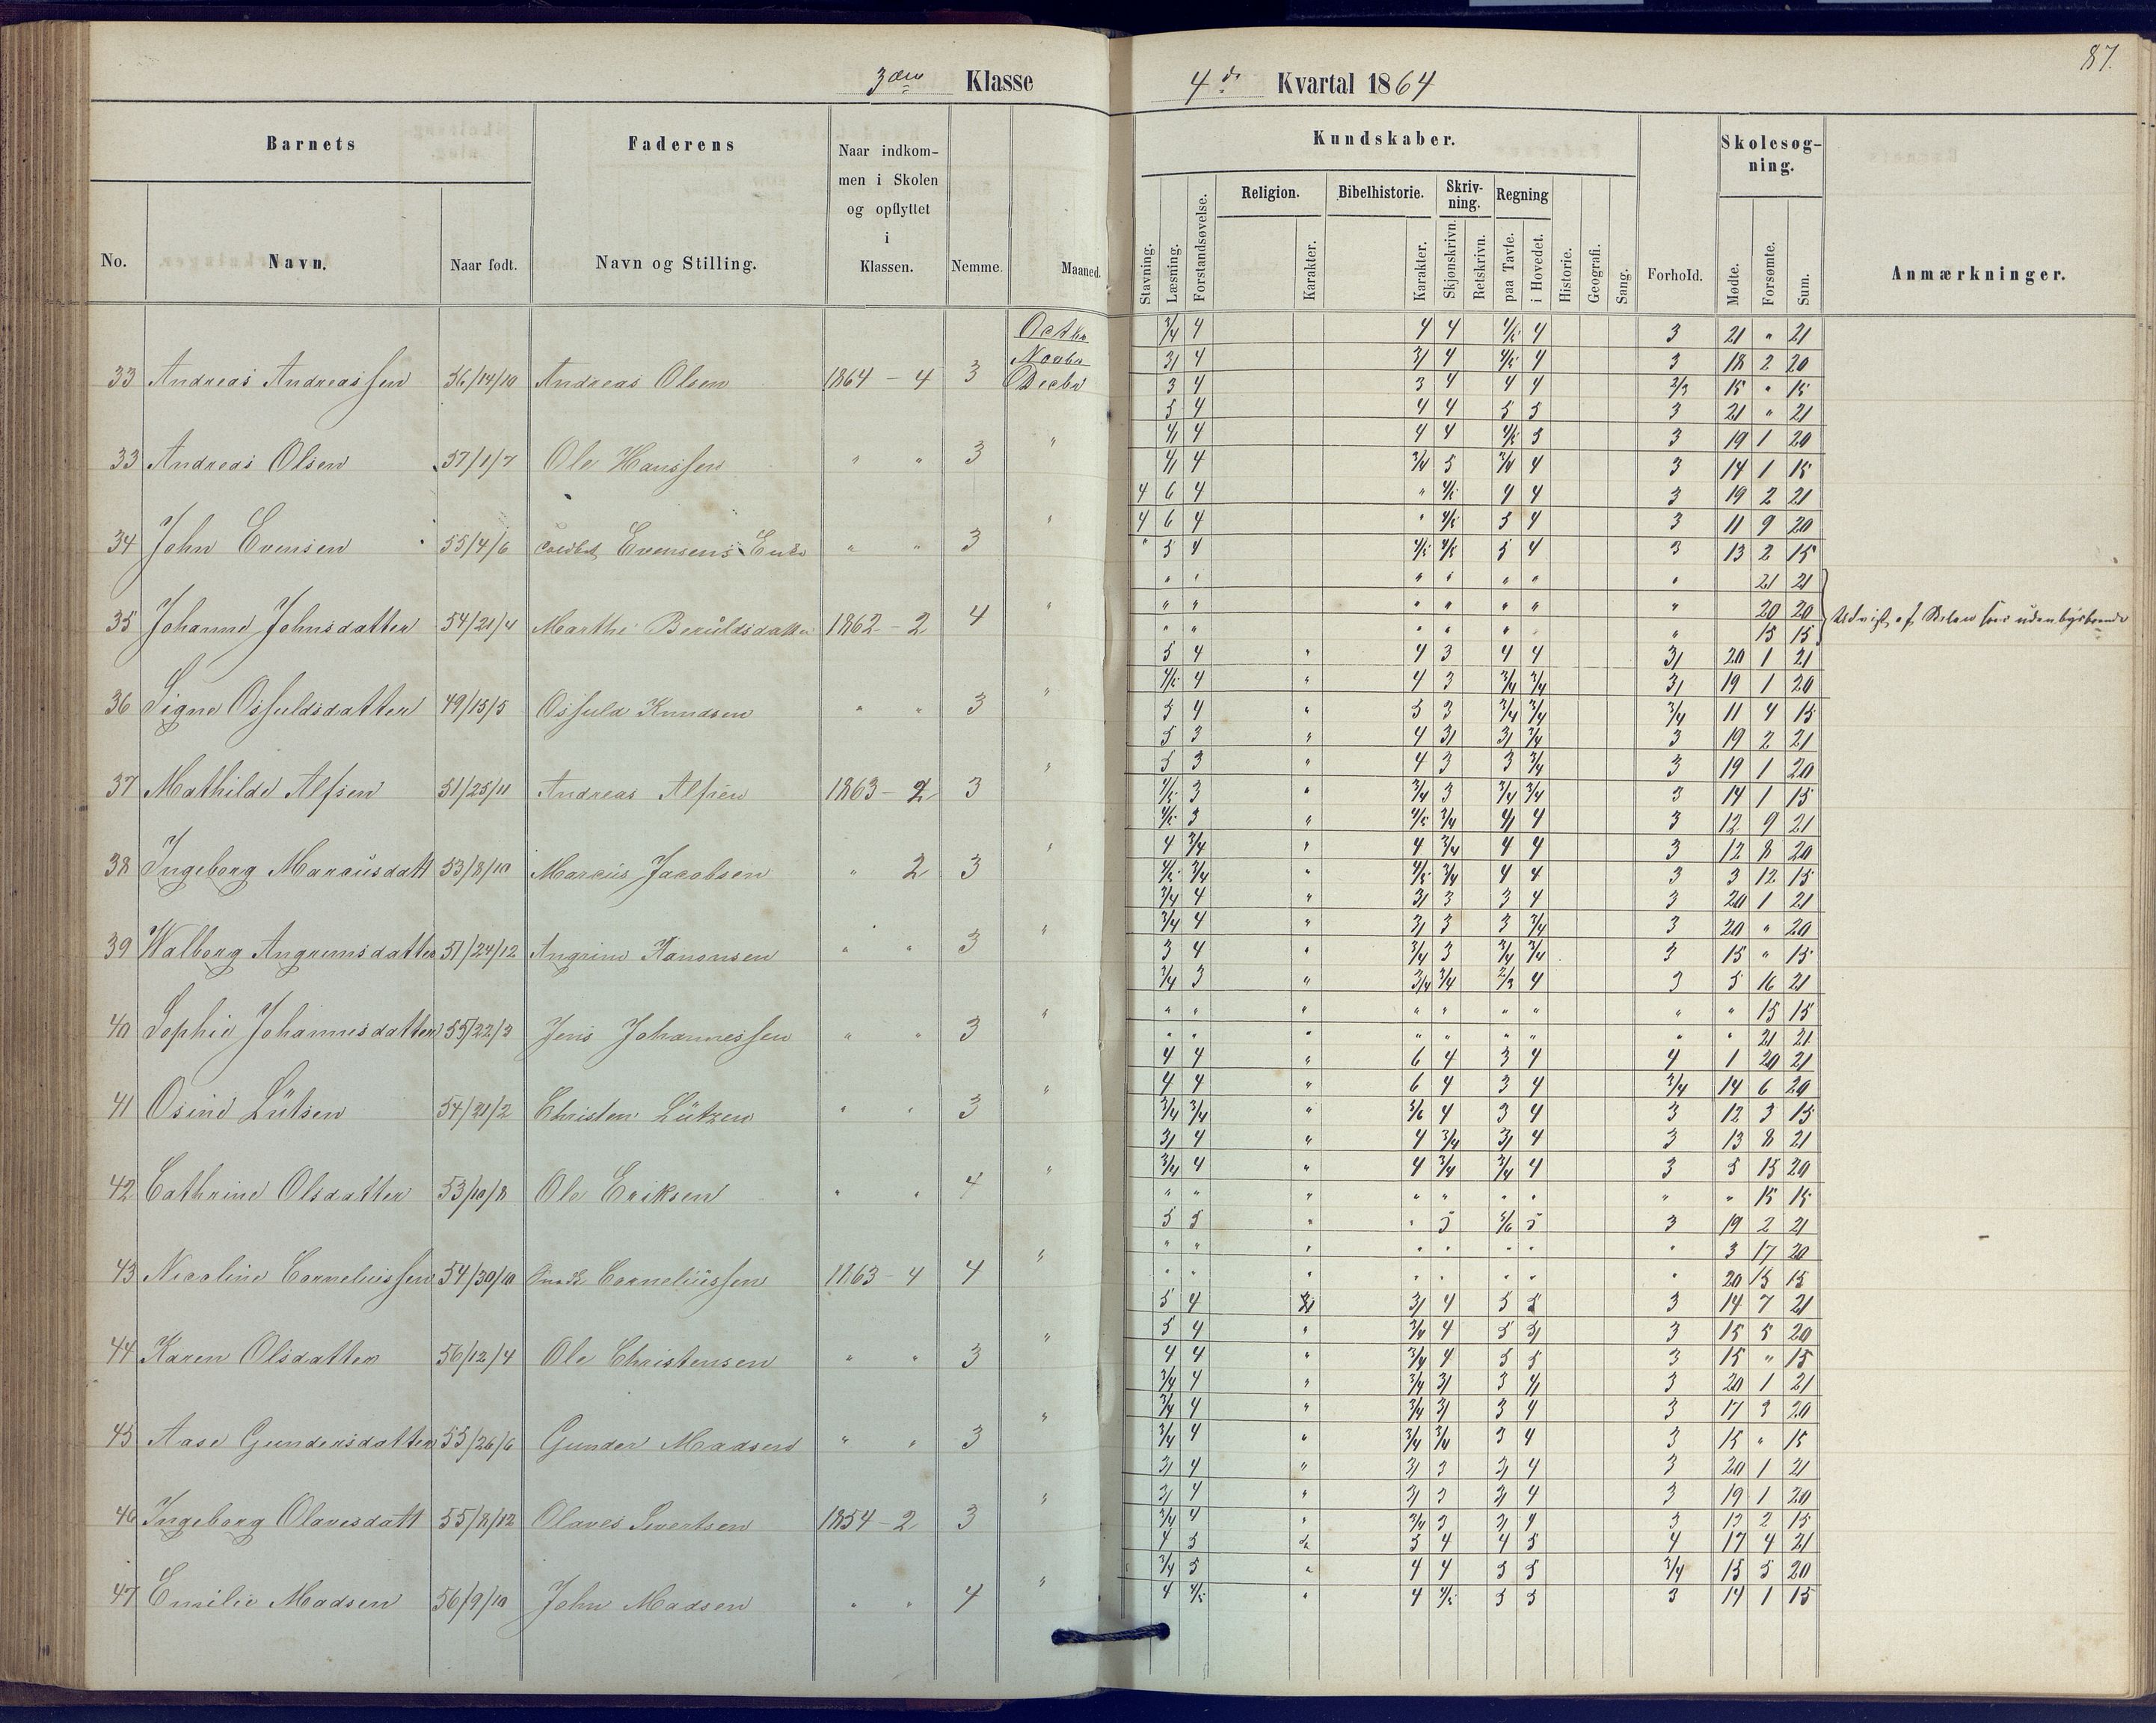 87.
3die Klasse
4de Kvartal 1864
Barnets
Faderens
Naar indkommen i Skolen og opflyttet i Klassen.
Nemme.
Maaned.
No.
Navn.
Naar født.
Navn og Stilling.
Kundskaber.
Stavning.
Læsning.
Forstandsøvelse.
Religion.
Karakter.
Bibelhistorie.
Karakter.
Skrivning.
Skjønskrivn.
Retskrivn.
Regning
paa Tavle.
i Hovedet.
Historie.
Geografi.
Sang.
Forhold.
Skolesøgning.
Mødte.
Forsømte.
Sum.
Anmærkninger.
Octbr
Novbr
33 Andreas Andreassen 56/14/10 Andreas Olsen 1864 - 4 3 Decbr
33 Andreas Olsen 57/1/7 Ole Hanssen " " 3 "
34 John Evensen 55/4/6 Evensens Enke " " 3 "
35 Johanne Johnsdatter 54/21/4 Marthe Beruldsdatter 1862 - 2 4 "
36 Signe Osfuldsdatter 49/15/5 Osfuld Knudsen " " 3 "
37 Mathilde Alfsen 51/25/11 Andreas Alfsen 1863 - 2 3 "
38 Ingeborg Marcusdatt 53/8/10 Marcus Jacobsen " 2 3 "
39 Walborg Angrimsdatter 51/24/12 Angrim Aanonsen " " 3 "
40 Sophie Johannesdatter 55/22/3 Jens Johannessen " " 3 "
41 Osine Lütsen 54/21/2 Christen Lützen " " 3 "
42 Cathrine Olsdatter 53/10/8 Ole Eriksen " " 4 "
43 Nicoline Corneliussen 54/30/10 Corneliussen 1863 - 4 4 "
44 Karen Olsdatter 56/12/4 Ole Christensen " " 3 "
45 Aase Gundersdatter 55/26/6 Gunder Madsen " " 3 "
46 Ingeborg Olavesdatt 55/8/12 Olaves Sivertsen 1854 - 2 3 "
47 Emilie Madsen 56/9/10 John Madsen " " 4 "
3/4 4 4 4 4/5 4 3 21 " 21
3/ 4 3/ 4 4/5 4 3 18 2 20
3 4 3 4 4 4 2/3 15 " 15
5 4 4 4 5 5 3 21 " 21
4/ 4 4 4 4/5 5 3 19 1 20
4/ 4 3/4 5 3/4 4 3 14 1 15
4 6 4 " 4/5 4 4 3 19 2 21
4 6 4 " 4/5 5 4 3 11 9 20
" 5 4 4/5 4/5 5 4 3 13 2 15
" " " " " " " 21 21
" " " " " " " 20 20
" " " " " " 15 15
5 4 " 4 3 4 4 3/ 20 1 21
4/5 4 " 4 3 3/4 3/4 3/ 19 1 20
5 4 " 5 3 3/4 3/4 3/4 11 4 15
5 3 " 4 3/ 3/ 3/4 3 19 2 21
5 3 " 4 3 3 3/4 3 19 1 20
4/5 3 " 3/4 3 3/4 3/4 3 14 1 15
4/5 3 " 4/5 3/4 4/ 4 3 12 9 21
4 3/4 " 4 3/4 4 4 3 12 8 20
4/5 3/4 " 4/5 3/4 4 4 3 3 12 15
3/4 4 " 3/ 3 3 4 3 20 1 21
3/4 4 " 3/ 3 3 3/4 3 20 " 20
3 4 " 3/4 3 3/4 3/4 3 15 " 15
3/4 3 " 3/4 3/4 2/3 4 3 5 16 21
" " " " " " " " " 15 15
" " " " " " " " " 21 21
4 4 " 6 4 3 4 4 1 20 21
4 4 " 6 4 3 4 3/4 14 6 20
3/4 3/4 " 5/6 4 3 4 3 12 3 15
3/ 4 " 4 3/4 3/ 4 3 13 8 21
3/4 4 " 4 3/4 3/4 4 3 5 15 20
" " " " " " " " " 15 15
5 5 " " 5 5/6 5 3 19 2 21
" " " " " " " " 3 17 20
" " " " " " " " 20 15 15
5 4 3/ 4 5 5 3 14 7 21
5 4 " 3/4 4 5 5/ 3 15 5 20
4 4 " 3/4 4 5 5 3 15 " 15
3/4 4 " 3/4 3/ 3 4/ 3 20 1 21
3/4 4 " 3/4 3/ 3 4 3 17 3 20
3/4 4 " 3/4 3/4 3 4 3 15 " 15
3/ 4 " 3/ 3 3/ 4 3 20 1 21
3/ 4 " 3/ 3 3/ 4 3 19 1 20
3/4 4 " 3/4 3 3/ 4 3 13 2 15
4 5 5 4 4 5 4 17 4 21
3/4 5 " 4 4 5 5 3/4 15 5 20
4 4/5 " 4 4/5 5 5 3 14 1 15
af Skolen som udenbysboende